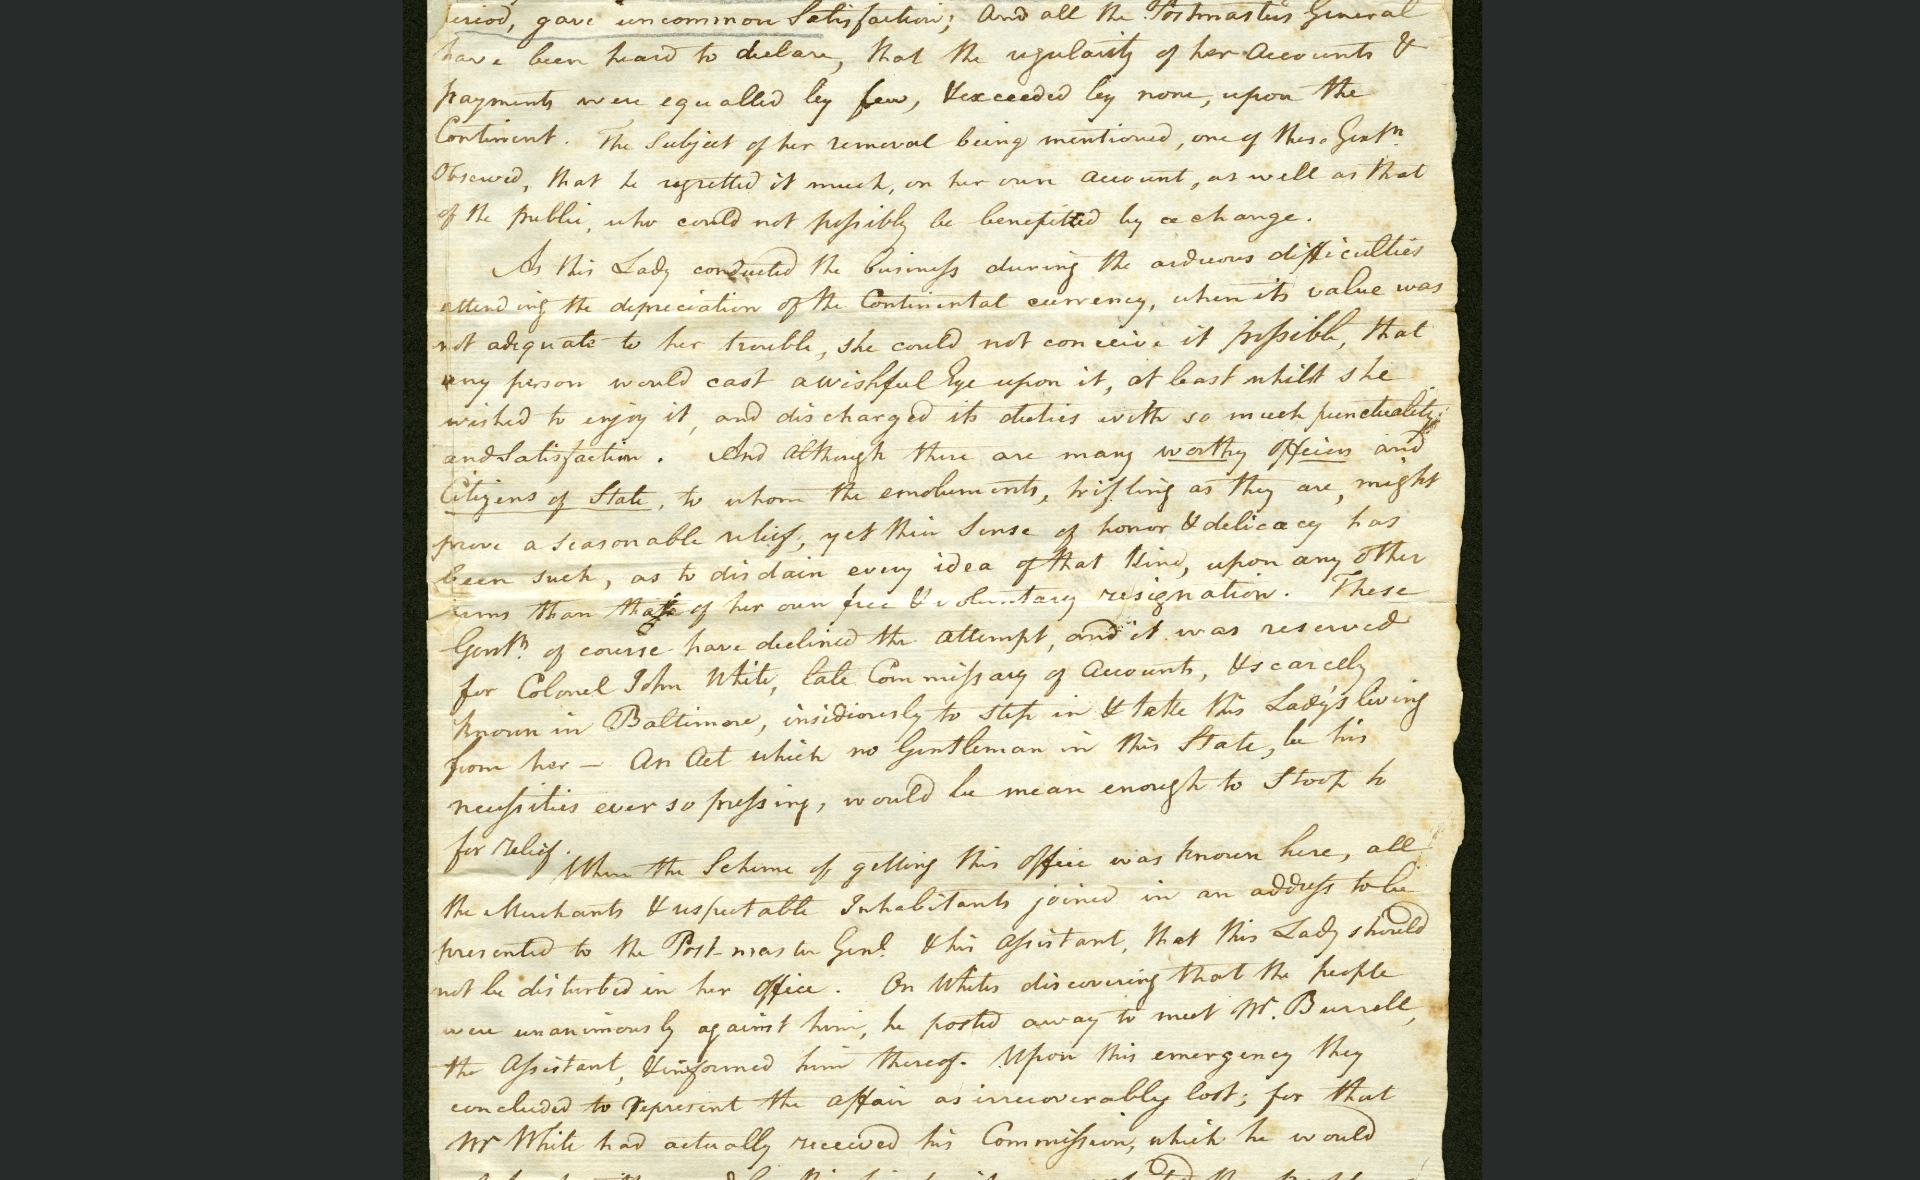 period, gave uncommon Satisfaction; And all the Postmasters General
have been heard to declare, that the regularity of her Accounts &
payments were equalled by few, & exceeded by none, upon the
Continent. The Subject of her removal being mentioned, one of these Gentn.
Observed, that he regretted it much, on her own Account, as well as that
of the Public, who could not possibly be benefitted by a change.
As this Lady conducted the business during the arduous difficulties
attending the depreciation of the Continental currency, when its value was
not adequate to her trouble, she could not conceive it possible, that
any person would cast a wishful Eye upon it, at least whilst she
wished to enjoy it, and discharged its duties with so much punctuality
and Satisfaction. And although there are many worthy Officers and
Citizens of State, to whom the emoluments, trifling as they are, might
prove a seasonable relief, yet their Sense of honor & delicacy has
been such, as to disdain every idea of that Kind, upon any other
terms than of her own free & voluntary resignation. These
Gentn. of course have declined the attempt, and it was reserved
for Colonel John White, late Commissary of Accounts, & scarcely
known in Baltimore, insidiously to step in & take this Lady's living
from her — An Act which no Gentleman in this State, be his
necessities ever so pressing, would be mean enough to Stoop to
for relief.
When the Scheme of getting this Office was known here, all
the Merchants & respectable Inhabitants joined in an address to be
presented to the Post-master Genl. & his Assistant, that this Lady should
not be disturbed in her Office. On Whites discovering that the people
were unanimously against him, he posted away to meet Mr. Burrell,
the Assistant, & informed him thereof. Upon this emergency they
concluded to represent the affair as irrecoverably lost; for that
Mr White had actually received his Commission, which he would